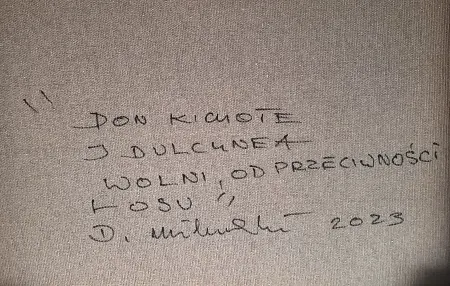 "
DON KICHOTE
I DULCYNEA
WOLNI, OD PRZECIWNOŚCI
LOSU"
D. 2023